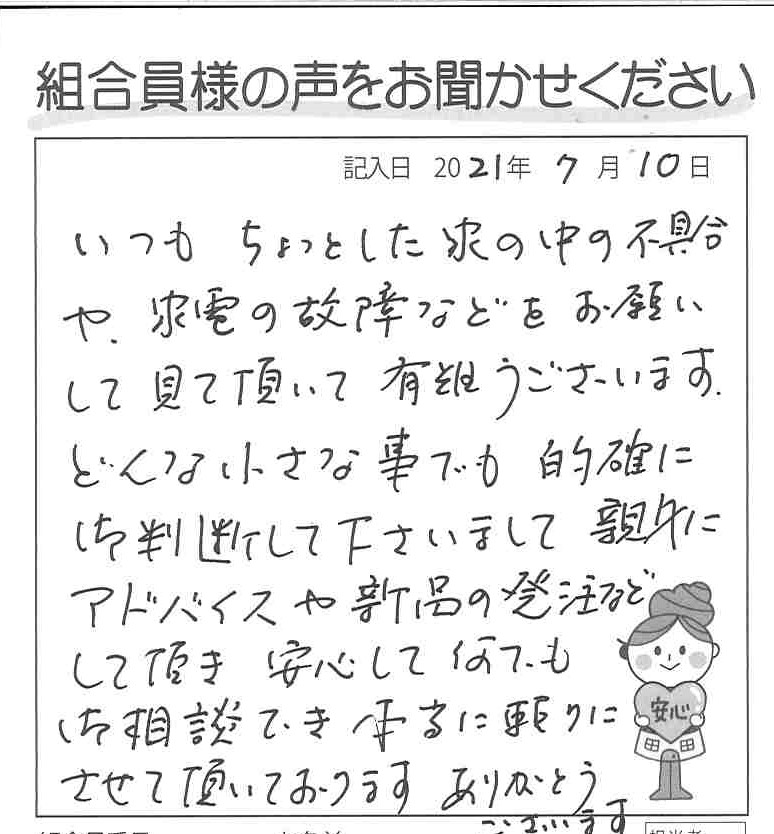 組合員様の声をお聞かせください
記入日 2021年 7月 10日
いつも ちょっとした家の中の不具合
や、家電の故障などをお願い
して見て頂いて 有難うございます。
どんな小さな事でも 的確に
御判断して下さいまして 親身に
アドバイスや新品の発注など
して頂き 安心して何でも
御相談でき 本当に頼りに
させて頂いております ありがとう
ございます
安心